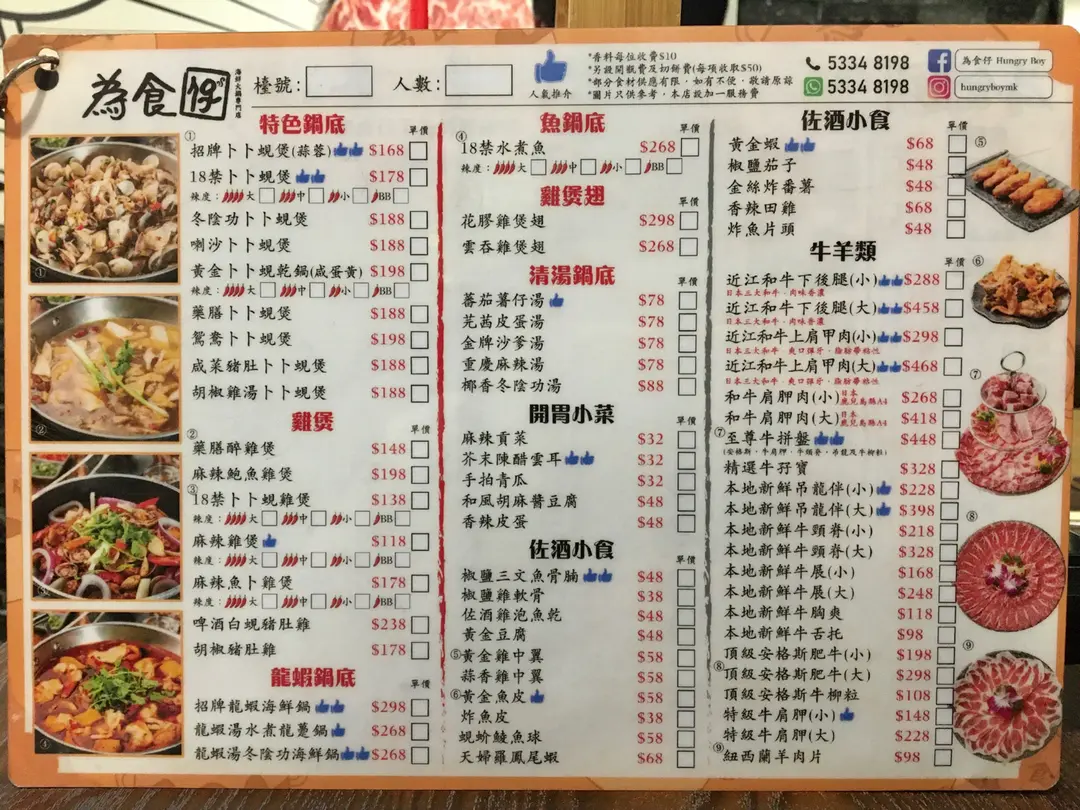 為食仔
海鮮火鍋專門店
檯號：
人數：
人氣推介
*香料每位收費$10
*另設開瓶費及切餅費(每項收取$50)
*部分食材供應有限，如有不便，敬請原諒
*圖片只供參考，本店設加一服務費
5334 8198
5334 8198
為食仔 Hungry Boy
hungryboymk
特色鍋底
單價
①
招牌卜卜蜆煲(蒜蓉) $168
18禁卜卜蜆煲 $178
辣度： 大 中 小 BB
冬陰功卜卜蜆煲 $188
喇沙卜卜蜆煲 $188
黃金卜卜蜆乾鍋(咸蛋黃) $198
辣度： 大 中 小 BB
藥膳卜卜蜆煲 $188
鴛鴦卜卜蜆煲 $198
咸菜豬肚卜卜蜆煲 $188
胡椒雞湯卜卜蜆煲 $188
雞煲
單價
②
藥膳醉雞煲 $148
麻辣鮑魚雞煲 $198
③
18禁卜卜蜆雞煲 $138
辣度： 大 中 小 BB
麻辣雞煲 $118
辣度： 大 中 小 BB
麻辣魚卜雞煲 $178
辣度： 大 中 小 BB
啤酒白蜆豬肚雞 $238
胡椒豬肚雞 $178
龍蝦鍋底
單價
招牌龍蝦海鮮鍋 $298
龍蝦湯水煮龍躉鍋 $268
龍蝦湯冬陰功海鮮鍋 $268
①
②
③
④
魚鍋底
單價
④
18禁水煮魚 $268
辣度： 大 中 小 BB
雞煲翅
單價
花膠雞煲翅 $298
雲吞雞煲翅 $268
清湯鍋底
單價
蕃茄薯仔湯 $78
芫茜皮蛋湯 $78
金牌沙爹湯 $78
重慶麻辣湯 $78
椰香冬陰功湯 $88
開胃小菜
單價
麻辣貢菜 $32
芥末陳醋雲耳 $32
手拍青瓜 $32
和風胡麻醬豆腐 $48
香辣皮蛋 $48
佐酒小食
單價
椒鹽三文魚骨腩 $48
椒鹽雞軟骨 $38
佐酒雞泡魚乾 $48
黃金豆腐 $48
⑤黃金雞中翼 $58
蒜香雞中翼 $58
⑥黃金魚皮 $58
炸魚皮 $38
蜆蚧鯪魚球 $58
天婦羅鳳尾蝦 $68
佐酒小食
單價
黃金蝦 $68
椒鹽茄子 $48
金絲炸番薯 $48
香辣田雞 $68
炸魚片頭 $48
牛羊類
單價
近江和牛下後腿(小) $288
日本三大和牛，肉味香濃
近江和牛下後腿(大) $458
日本三大和牛，肉味香濃
近江和牛上肩甲肉(小) $298
日本三大和牛，爽口彈牙，脂肪帶粘性
近江和牛上肩甲肉(大) $468
日本三大和牛，爽口彈牙，脂肪帶粘性
和牛肩胛肉(小) 日本鹿兒島縣A4 $268
和牛肩胛肉(大) 日本鹿兒島縣A4 $418
⑦至尊牛拼盤 $448
(安格斯，牛肩胛，牛頸脊，吊龍及牛柳粒)
精選牛孖寶 $328
本地新鮮吊龍伴(小) $228
本地新鮮吊龍伴(大) $398
本地新鮮牛頸脊(小) $218
本地新鮮牛頸脊(大) $328
本地新鮮牛展(小) $168
本地新鮮牛展(大) $248
本地新鮮牛胸爽 $118
本地新鮮牛舌托 $98
頂級安格斯肥牛(小) $198
⑧頂級安格斯肥牛(大) $298
頂級安格斯牛柳粒 $108
特級牛肩胛(小) $148
特級牛肩胛(大) $228
⑨紐西蘭羊肉片 $98
⑤
⑥
⑦
⑧
⑨